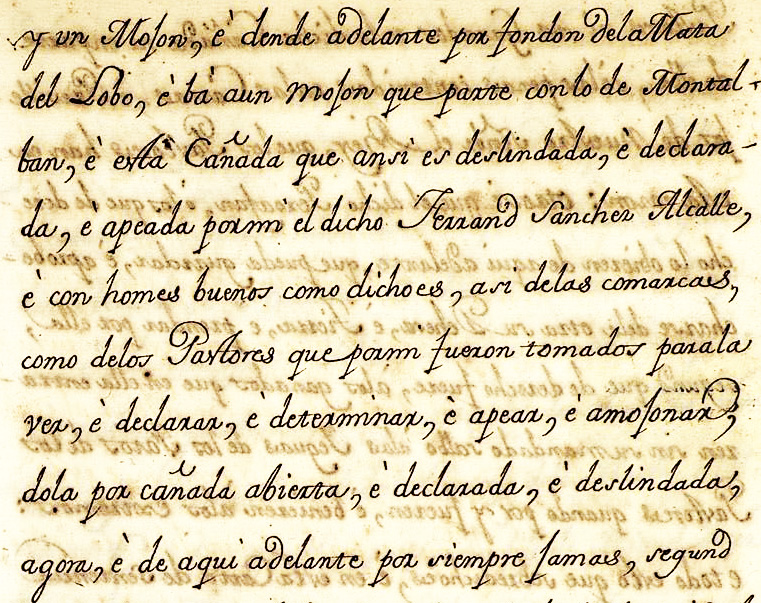 y un Moſon, è dende adelante por fondon dela Mata
del Lobo, è bà aun Moſon que parte con lo de Montal-
ban, è esta Cañada que ansi es deslindada, è declara-
da, è apeada por mi el dicho Ferrand Sanchez Alcalle,
è con homes buenos como dicho es, asi delas comarcas,
como delos Pastores que por mi fueron tomados para la
ver, è declarar, è determinar, è apear, è amoſonar,
dola por cañada abierta, è declarada, è deslindada,
agora, è de aqui adelante por siempre Jamas, segund